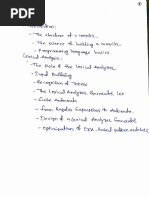 Introduction:
- The structure of a compiler
- The science of building a compiler
- Programming language basics
Lexical Analysis:
- The Role of the Lexical Analyzer
- Input Buffering
- Recognition of Tokens
- The Lexical Analyzer Generator Lex
- Finite Automata
- From Regular Expressions to Automata
- Design of a Lexical Analyzer Generator
- Optimization of DFA-based pattern matchers